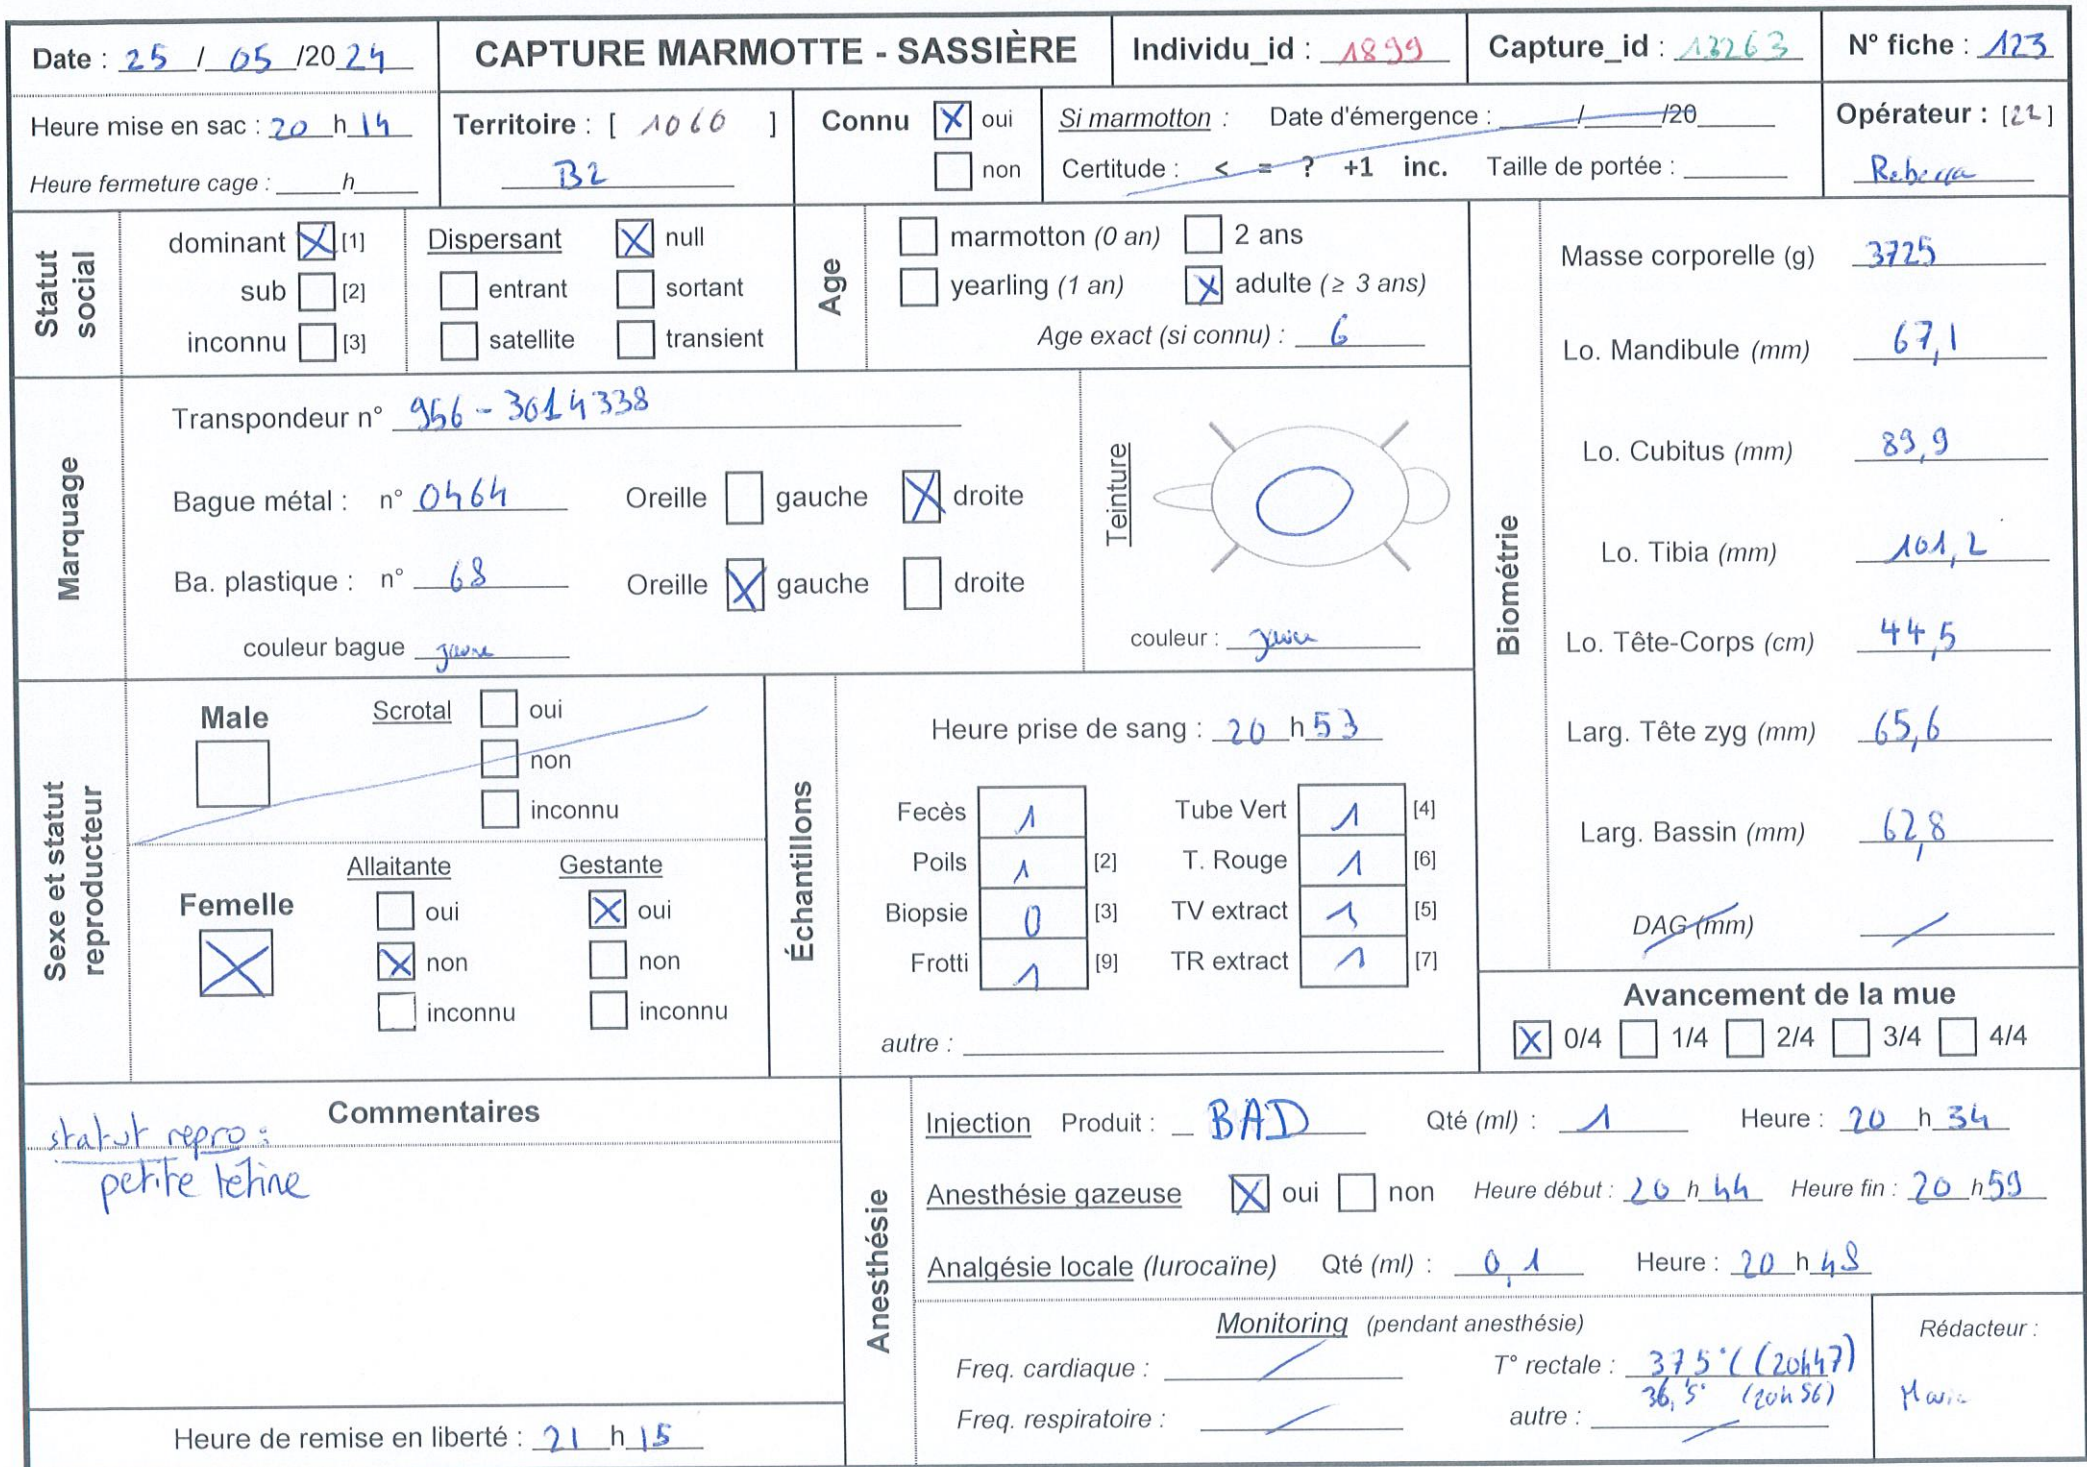 Date : 25 / 05 /20 24
CAPTURE MARMOTTE - SASSIÈRE
Individu_id : 1899
Capture_id : 13263
N° fiche : 123
Heure mise en sac : 20 h 14
Heure fermeture cage : ____h____
Territoire : [ 1060 ]
B2
Connu X oui
non
Si marmotton : Date d'émergence : ____/____/20____
Certitude : < = ? +1 inc. Taille de portée :
Opérateur : [22]
Rebecca
Statut social
dominant X [1]
sub [2]
inconnu [3]
Dispersant X null
entrant sortant
satellite transient
Age
marmotton (0 an) 2 ans
yearling (1 an) X adulte (≥ 3 ans)
Age exact (si connu) : 6
Marquage
Transpondeur n° 956 - 3014338
Bague métal : n° 0464 Oreille gauche X droite
Ba. plastique : n° 68 Oreille X gauche droite
couleur bague jaune
Teinture
couleur : jaune
Biométrie
Masse corporelle (g) 3725
Lo. Mandibule (mm) 67,1
Lo. Cubitus (mm) 89,9
Lo. Tibia (mm) 101,2
Lo. Tête-Corps (cm) 44,5
Larg. Tête zyg (mm) 65,6
Larg. Bassin (mm) 62,8
DAG (mm)
Sexe et statut reproducteur
Male
Scrotal oui
non
inconnu
Femelle X
Allaitante Gestante
oui X oui
X non non
inconnu inconnu
Échantillons
Heure prise de sang : 20 h 53
Fecès 1 Tube Vert 1 [4]
Poils 1 [2] T. Rouge 1 [6]
Biopsie 0 [3] TV extract 1 [5]
Frotti 1 [9] TR extract 1 [7]
autre :
Avancement de la mue
X 0/4 1/4 2/4 3/4 4/4
Commentaires
statut repro :
petite tétine
Heure de remise en liberté : 21 h 15
Anesthésie
Injection Produit : BAD Qté (ml) : 1 Heure : 20 h 34
Anesthésie gazeuse X oui non Heure début : 20 h 44 Heure fin : 20 h 59
Analgésie locale (lurocaïne) Qté (ml) : 0,1 Heure : 20 h 48
Monitoring (pendant anesthésie)
Freq. cardiaque : T° rectale : 375°C (20h47)
36,5° (20h56)
Freq. respiratoire : autre :
Rédacteur :
Marie